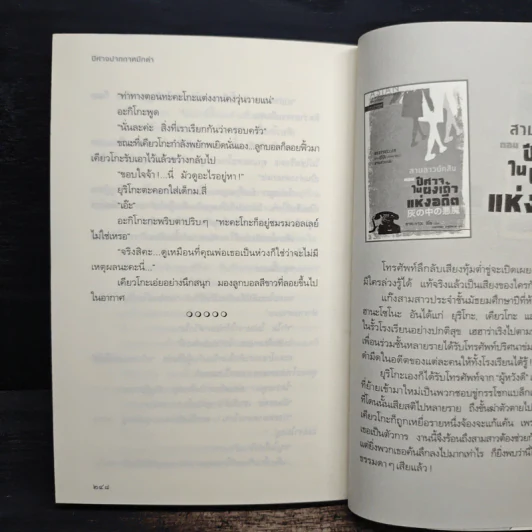 ปีศาจปากกาหมึกดำ
"ท่าทางตอนทะคะโกะแต่งงานคงวุ่นวายแน่"
อะกิโกะพูด
"นั่นละค่ะ สิ่งที่เราเรียกกันว่าครอบครัว"
ขณะที่เคียวโกะกำลังพยักพเยิดนั่นเอง...ลูกบอลก็ลอยพิ้วมา
เคียวโกะรับเอาไว้แล้วขว้างกลับไป
"ขอบใจจ้า!...นี่ มัวดูอะไรอยู่หา !"
ยุริโกะตะคอกใส่เด็กม.สี่
"เอ๊ะ"
อะกิโกะกะพริบตาปริบๆ "ทะคะโกะก็อยู่ชมรมวอลเลย์
ไม่ใช่เหรอ"
"จริงสิคะ...ดูเหมือนที่คุณพ่อเธอเป็นห่วงก็ใช่ว่าจะไม่มี
เหตุผลนะคะนี่..."
เคียวโกะเอ่ยอย่างนึกสนุก มองลูกบอลสีขาวที่ลอยขึ้นไป
ในอากาศ
๒๔๘
สามสาวนักสืบ
ปีศาจ
ในผงเถ้า
แห่งอดีต
灰の中の悪魔
สาม
ตอน
ปี
ใน
แห่ง
โทรศัพท์ลึกลับเสียงทุ้มต่ำขู่จะเปิดเผย
มิใครล่วงรู้ได้ แท้จริงแล้วเป็นเสียงของใครกั
แก๊งสามสาวประจำชั้นมัธยมศึกษาปีที่ห้
ฮานะโซโนะ อันได้แก่ ยุริโกะ, เคียวโกะ แ
ในรั้วโรงเรียนอย่างปกติสุข เฮฮาร่าเริงไปตาม
เพื่อนร่วมชั้นหลายรายได้รับโทรศัพท์ปริศนาข่ม
ดำมืดในอดีตของแต่ละคนให้ทั้งโรงเรียนได้รู้ !
ยุริโกะเองก็ได้รับโทรศัพท์จาก "ผู้หวังดี"
ที่ย้ายเข้ามาใหม่เป็นพวกชอบขู่กรรโชกแบล็ก
ที่โดนนั้นเสียสติไปหลายราย ถึงขั้นฆ่าตัวตายไป
เคียวโกะก็ถูกเหยื่อรายหนึ่งจ้องจะแก้แค้น เพร
เธอเป็นตัวการ งานนี้จึงร้อนถึงสามสาวต้องช่วยกั
แต่ยิ่งพวกเธอค้นลึกลงไปมากเท่าไร ก็ยิ่งพบว่านี่
ธรรมดา ๆ เสียแล้ว !